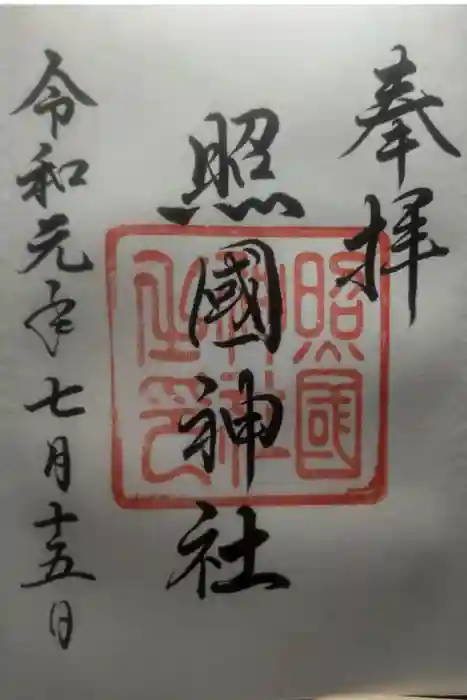 奉拝
照國神社
照国
神社
之印
令和元年七月十五日